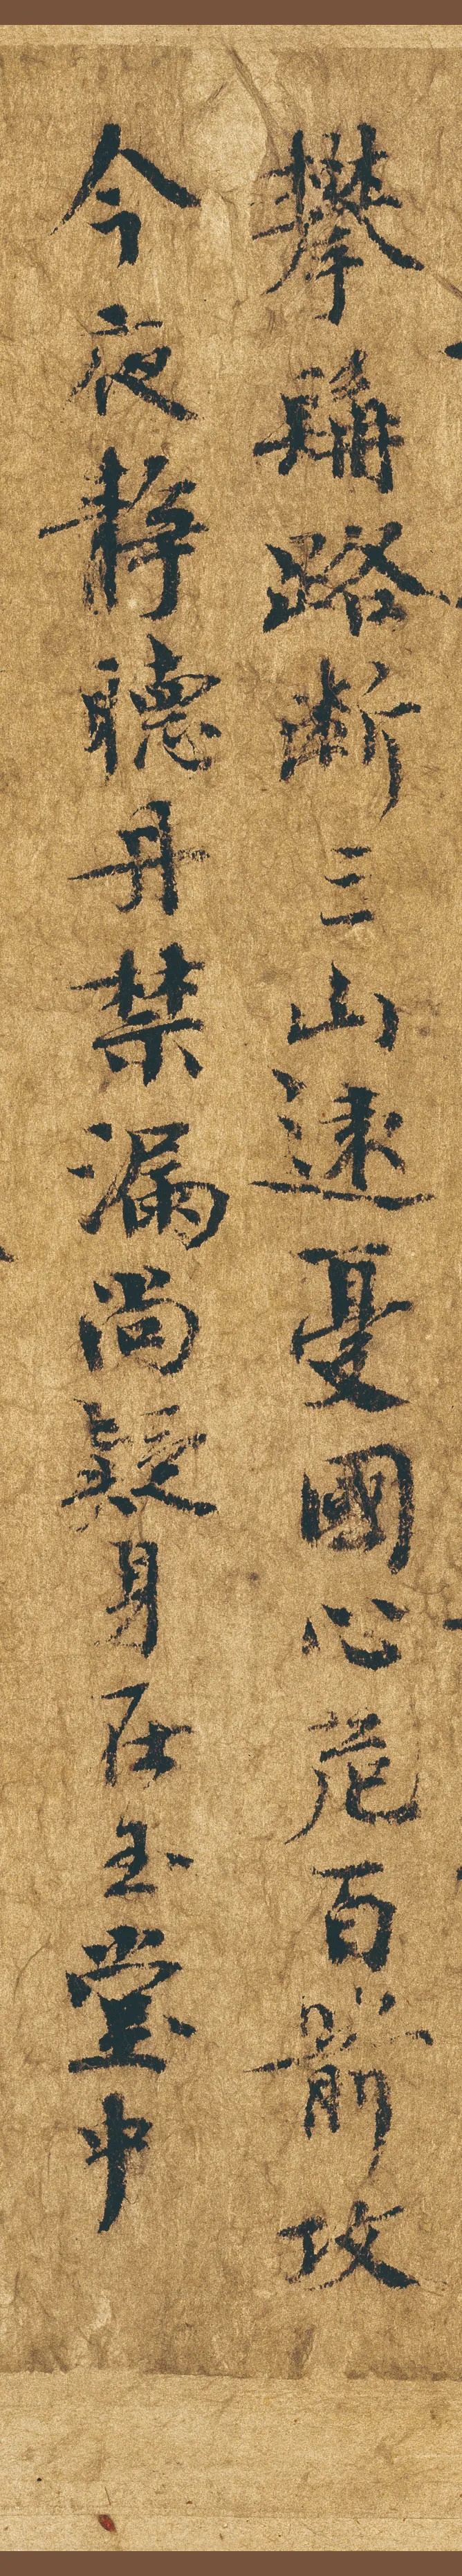 攀鱗路斷三山遠憂國心危百箭攻
今夜静聽丹禁漏尚疑身在玉堂中